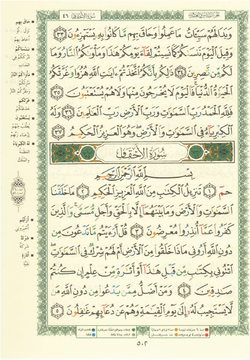 وَبَدَا لَهُمْ سَيِّـَٔاتُ مَا عَمِلُوا۟ وَحَاقَ بِهِم مَّا كَانُوا۟ بِهِۦ يَسْتَهْزِءُونَ ٣٣
وَقِيلَ ٱلْيَوْمَ نَنسَىٰكُمْ كَمَا نَسِيتُمْ لِقَآءَ يَوْمِكُمْ هَٰذَا وَمَأْوَىٰكُمُ ٱلنَّارُ وَمَا
لَكُم مِّن نَّٰصِرِينَ ٣٤ ذَٰلِكُم بِأَنَّكُمُ ٱتَّخَذْتُمْ ءَايَٰتِ ٱللَّهِ هُزُوًا وَغَرَّتْكُمُ
ٱلْحَيَوٰةُ ٱلدُّنْيَا فَٱلْيَوْمَ لَا يُخْرَجُونَ مِنْهَا وَلَا هُمْ يُسْتَعْتَبُونَ ٣٥
فَلِلَّهِ ٱلْحَمْدُ رَبِّ ٱلسَّمَٰوَٰتِ وَرَبِّ ٱلْأَرْضِ رَبِّ ٱلْعَٰلَمِينَ ٣٦ وَلَهُ
ٱلْكِبْرِيَآءُ فِى ٱلسَّمَٰوَٰتِ وَٱلْأَرْضِ وَهُوَ ٱلْعَزِيزُ ٱلْحَكِيمُ ٣٧
سُورَةُ ٱلْأَحْقَافِ
بِسْمِ ٱللَّهِ ٱلرَّحْمَٰنِ ٱلرَّحِيمِ
حمٓ ١ تَنزِيلُ ٱلْكِتَٰبِ مِنَ ٱللَّهِ ٱلْعَزِيزِ ٱلْحَكِيمِ ٢ مَا خَلَقْنَا
ٱلسَّمَٰوَٰتِ وَٱلْأَرْضَ وَمَا بَيْنَهُمَآ إِلَّا بِٱلْحَقِّ وَأَجَلٍ مُّسَمًّى وَٱلَّذِينَ
كَفَرُوا۟ عَمَّآ أُنذِرُوا۟ مُعْرِضُونَ ٣ قُلْ أَرَءَيْتُم مَّا تَدْعُونَ مِن
دُونِ ٱللَّهِ أَرُونِى مَاذَا خَلَقُوا۟ مِنَ ٱلْأَرْضِ أَمْ لَهُمْ شِرْكٌ فِى ٱلسَّمَٰوَٰتِ
ٱئْتُونِى بِكِتَٰبٍ مِّن قَبْلِ هَٰذَآ أَوْ أَثَٰرَةٍ مِّنْ عِلْمٍ إِن كُنتُمْ
صَٰدِقِينَ ٤ وَمَنْ أَضَلُّ مِمَّن يَدْعُوا۟ مِن دُونِ ٱللَّهِ مَن
لَّا يَسْتَجِيبُ لَهُۥٓ إِلَىٰ يَوْمِ ٱلْقِيَٰمَةِ وَهُمْ عَن دُعَآئِهِمْ غَٰفِلُونَ ٥
٥٠٢